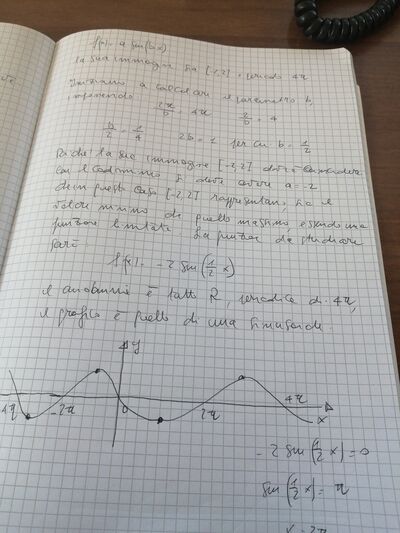 f(x) = a sin(bx)
la sua immagine sia [-2,2], periodo 4π
Iniziamo a calcolare il parametro b,
imponendo 2π/b = 4π 2/b = 4
b/2 = 1/4 2b = 1 per cui b = 1/2
la sua immagine [-2,2] deve
con il codominio si deve avere a = -2
in questo caso [-2,2] rappresentano sia il
valore minimo che quello massimo, essendo una
funzione limitata. La funzione da studiare
sarà
f(x) = -2 sin(1/2 x)
il dominio è tutto R, periodica di 4π,
il grafico è quello di una sinusoide.
y
-4π -2π 0 2π 4π x
-2 sin(1/2 x) = 0
sin(1/2 x) = π
x = 2π